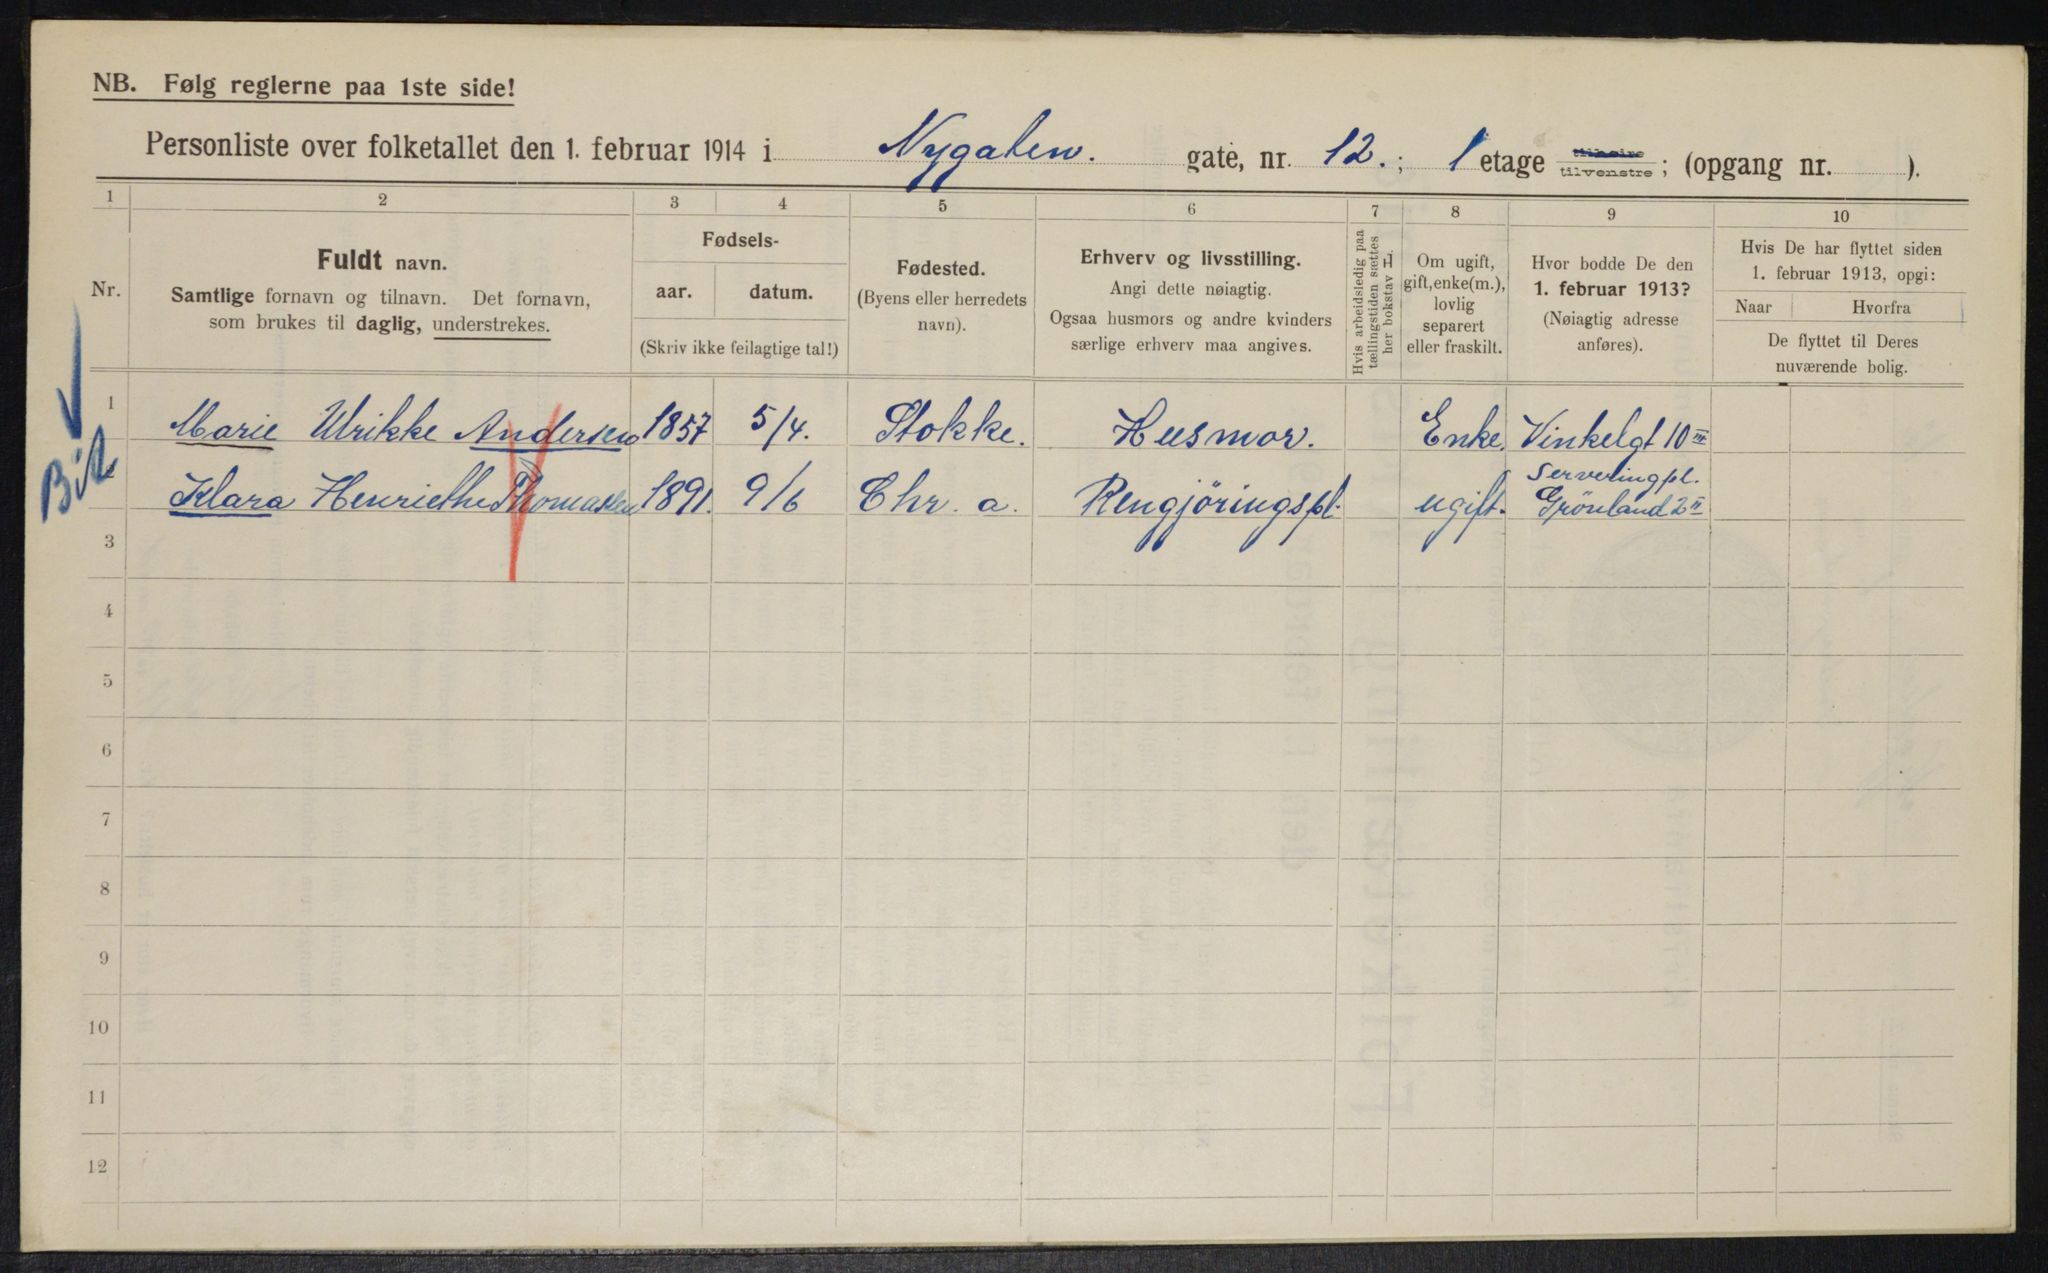 NB. Følg reglerne paa 1ste side!
Personliste over folketallet den 1. februar 1914 i Nygaten. gate, nr. 12. ; 1 etage tilhøire tilvenstre ; (opgang nr. ).
1 2 3 4 5 6 7 8 9 10
Nr.
Fuldt navn.
Samtlige fornavn og tilnavn. Det fornavn,
som brukes til daglig, understrekes.
Fødsels-
aar. datum.
(Skriv ikke feilagtige tal!)
Fødested.
(Byens eller herredets
navn).
Erhverv og livsstilling.
Angi dette nøiagtig.
Ogsaa husmors og andre kvinders
særlige erhverv maa angives.
Hvis arbeidsledig paa
tællingstiden sættes
her bokstav L.
Om ugift,
gift, enke(m.),
lovlig
separert
eller fraskilt.
Hvor bodde De den
1. februar 1913?
(Nøiagtig adresse
anføres).
Hvis De har flyttet siden
1. februar 1913, opgi:
Naar Hvorfra
De flyttet til Deres
nuværende bolig.
1 Marie Ulrikke Andersen 1857 5/4. Stokke. Husmor. Enke. Vinkelgt 10 III
Serveringpl.
Klara Henriethe Thomassen 1891. 9/6 Chr. a. Rengjöringspl. ugift. Grönland 2 II
3
4
5
6
7
8
9
10
11
12